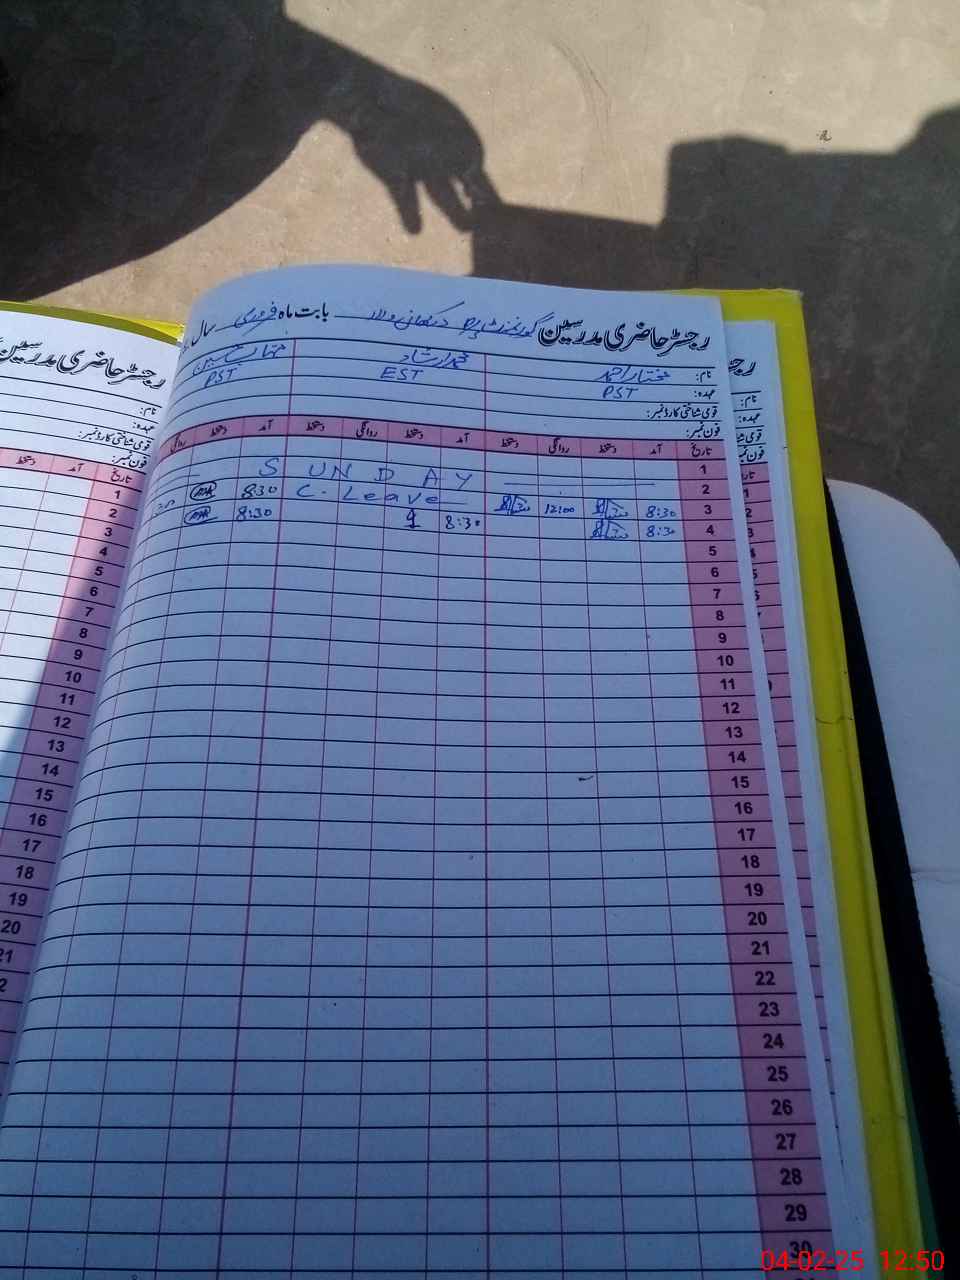 رجسٹر حاضری مدرسین گورنمنٹ بابت ماہ فروری سال
نام: مختار احمد محمد ارشاد
عہدہ: PST EST PST
قومی شناختی کارڈ نمبر:
فون نمبر:
تاریخ آمد دستخط روانگی دستخط آمد دستخط روانگی دستخط آمد دستخط روانگی
1
2 SUNDAY
3 8:30 12:00 C. Leave 8:30
4 8:30 8:30 8:30
5
6
7
8
9
10
11
12
13
14
15
16
17
18
19
20
21
22
23
24
25
26
27
28
29
30
رجسٹر حاضری مدرسین
نام:
عہدہ:
قومی شناختی کارڈ نمبر:
فون نمبر:
تاریخ آمد دستخط
1
2
3
4
5
6
7
8
9
10
11
12
13
14
15
16
17
18
19
20
21
04-02-25 12:50